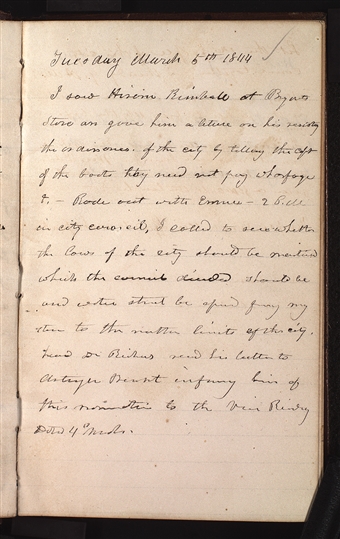 Tuesday March 5th 1844
I saw Hiram Kimball at Bryants
Store an gave him a lecture on his resisting
the ordinances. of the city by telling the capt
of the boats they need not pay wharfage
&. – Rode out with Emma – 2 P.M
in city council, I called to see whether
the laws of the city should be
which the council should be
and water street be open from my
store to the limits of the city.
heard Dr Richards read his letter to
Arlington Bennet informing him of
his nomination to the Vice
Dated 4th